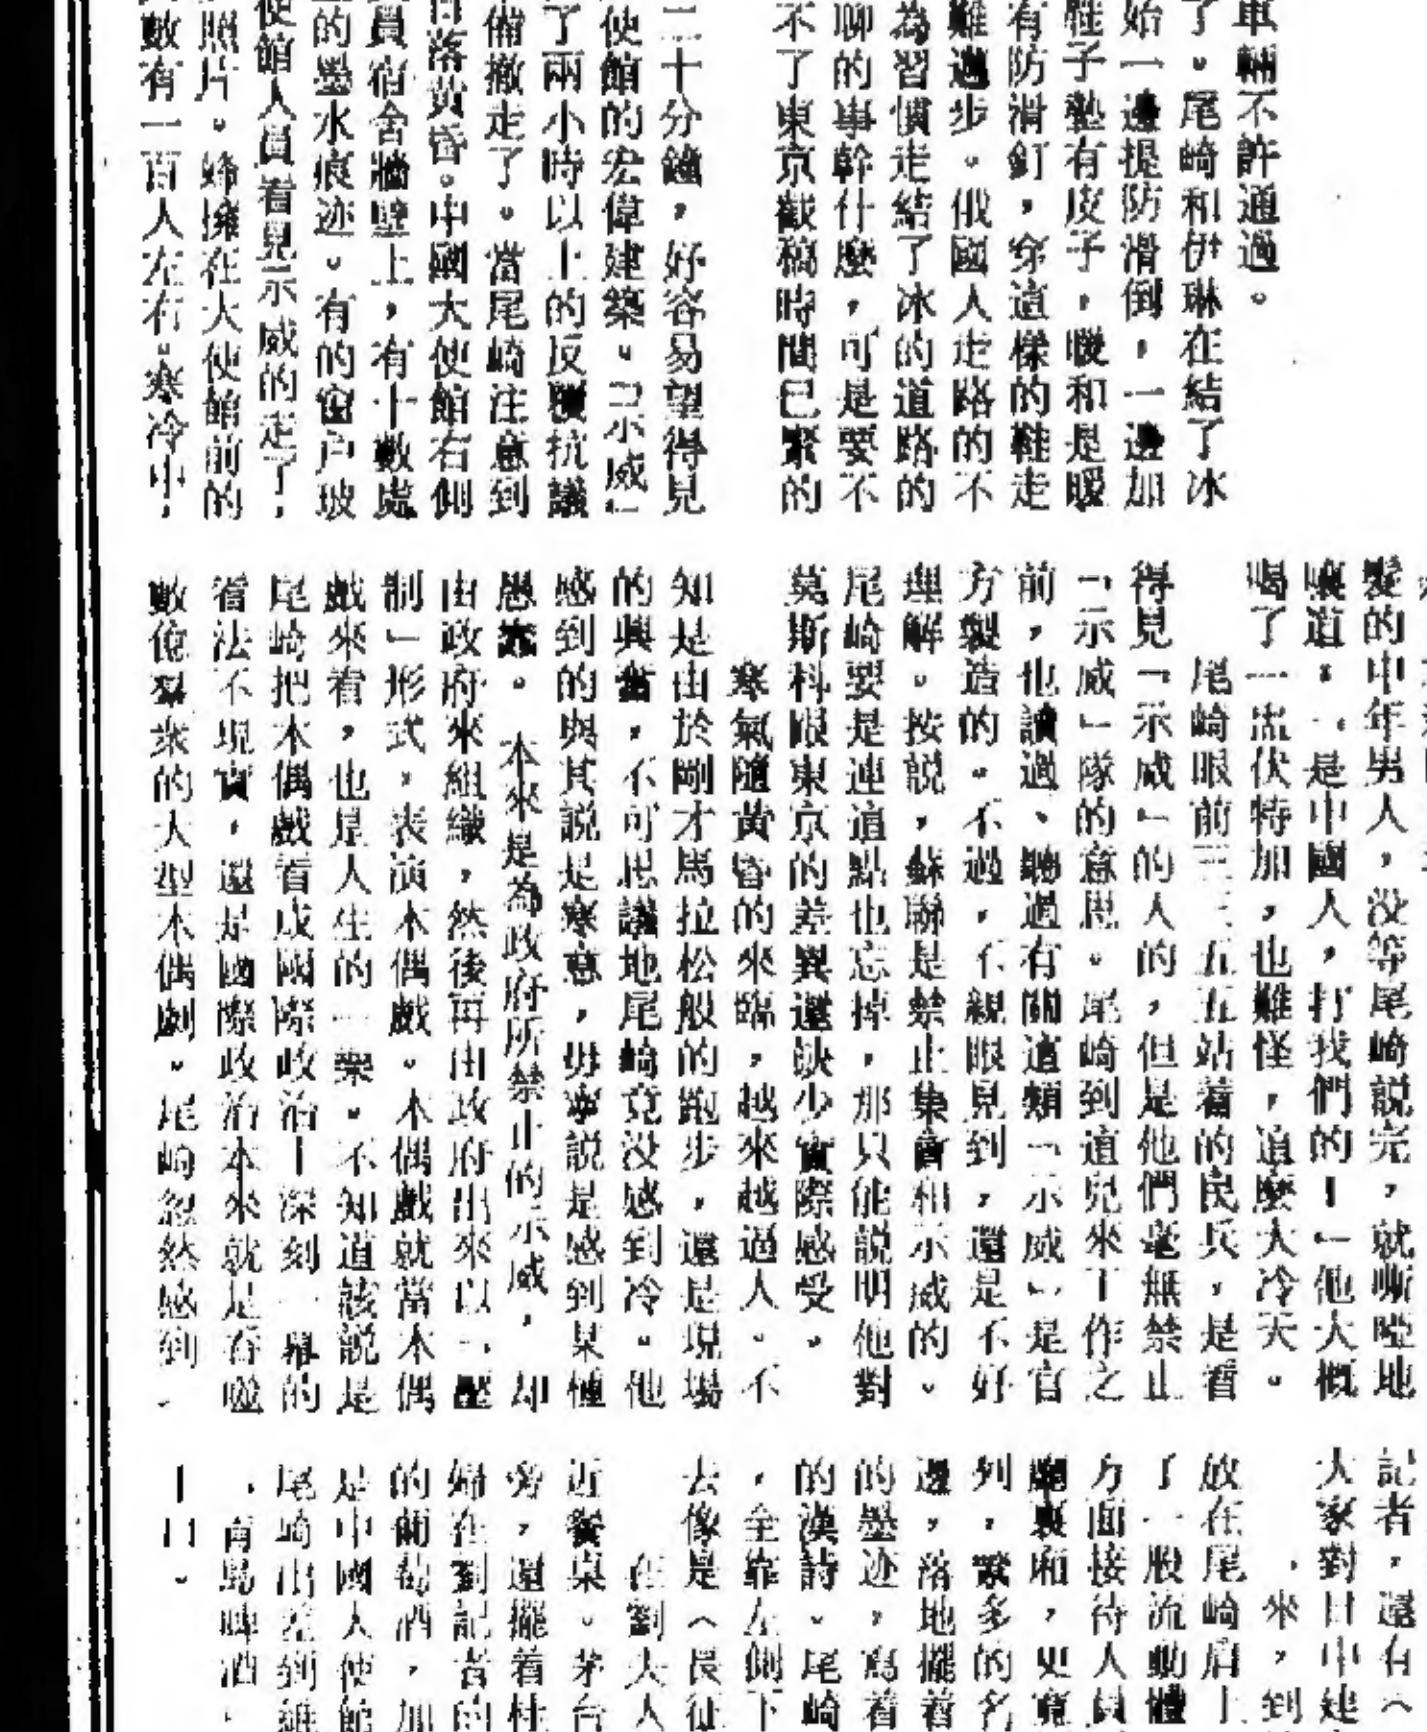 車輛不許通過。
了。尾崎和伊琳在結了冰
始一邊提防滑倒，一邊加
鞋子墊有皮子，暖和是暖
有防滑釘，穿這樣的鞋走
難邁步。俄國人走路的不
為習慣走結了冰的道路的
聊的事幹什麼，可是要不
不了東京截稿時間已緊的
二十分鐘，好容易望得見
使館的宏偉建築。「示威」
了兩小時以上的反覆抗議
備撤走了。當尾崎注意到
日落黃昏。中國大使館右側
員宿舍牆壁上，有十數處
的墨水痕迹。有的窗户玻
使館人員看見示威的走了，
照片。蜂擁在大使館前的
數有一百人左右。寒冷中，
髮的中年男人，没等尾崎説完，就嘶啞地
嚷道：「是中國人，打我們的！」他大概
喝了一盅伏特加，也難怪，這麼大冷天。
尾崎眼前三三五五站着的民兵，是看
得見「示威」的人的，但是他們毫無禁止
「示威」隊的意思。尾崎到這兒來工作之
前，也讀過、聽過有關這類「示威」是官
方製造的。不過，不親眼見到，還是不好
理解。按説，蘇聯是禁止集會和示威的。
尾崎要是連這點也忘掉，那只能説明他對
莫斯科跟東京的差異還缺少實際感受。
寒氣隨黃昏的來臨，越來越逼人。不
知是由於剛才馬拉松般的跑步，還是現場
的興奮，不可思議地尾崎竟没感到冷。他
感到的與其説是寒意，毋寧説是感到某種
愚弄。本來是為政府所禁止的示威，却
由政府來組織，然後再由政府出來以「壓
制」形式，表演木偶戲。木偶戲就當木偶
戲來看，也是人生的一樂。不知道該説是
尾崎把木偶戲看成國際政治——深刻一幕的
看法不現實，還是國際政治本來就是吞噬
數億羣衆的大型木偶劇。尾崎忽然感到，
記者，還有〈
大家對日中建
，來，到
放在尾崎肩上
了一股流動體
方面接待人員
廳裏廂，更寬
列，繁多的名
邊，落地擺着
的墨迹，寫着
的漢詩。尾崎
，全靠左側下
去像是〈長征
在劉大人
近餐桌。茅台
旁，還擺着桂
婦在劉記者的
的葡萄酒，加
是中國大使館
尾崎出差到
，青島啤酒，